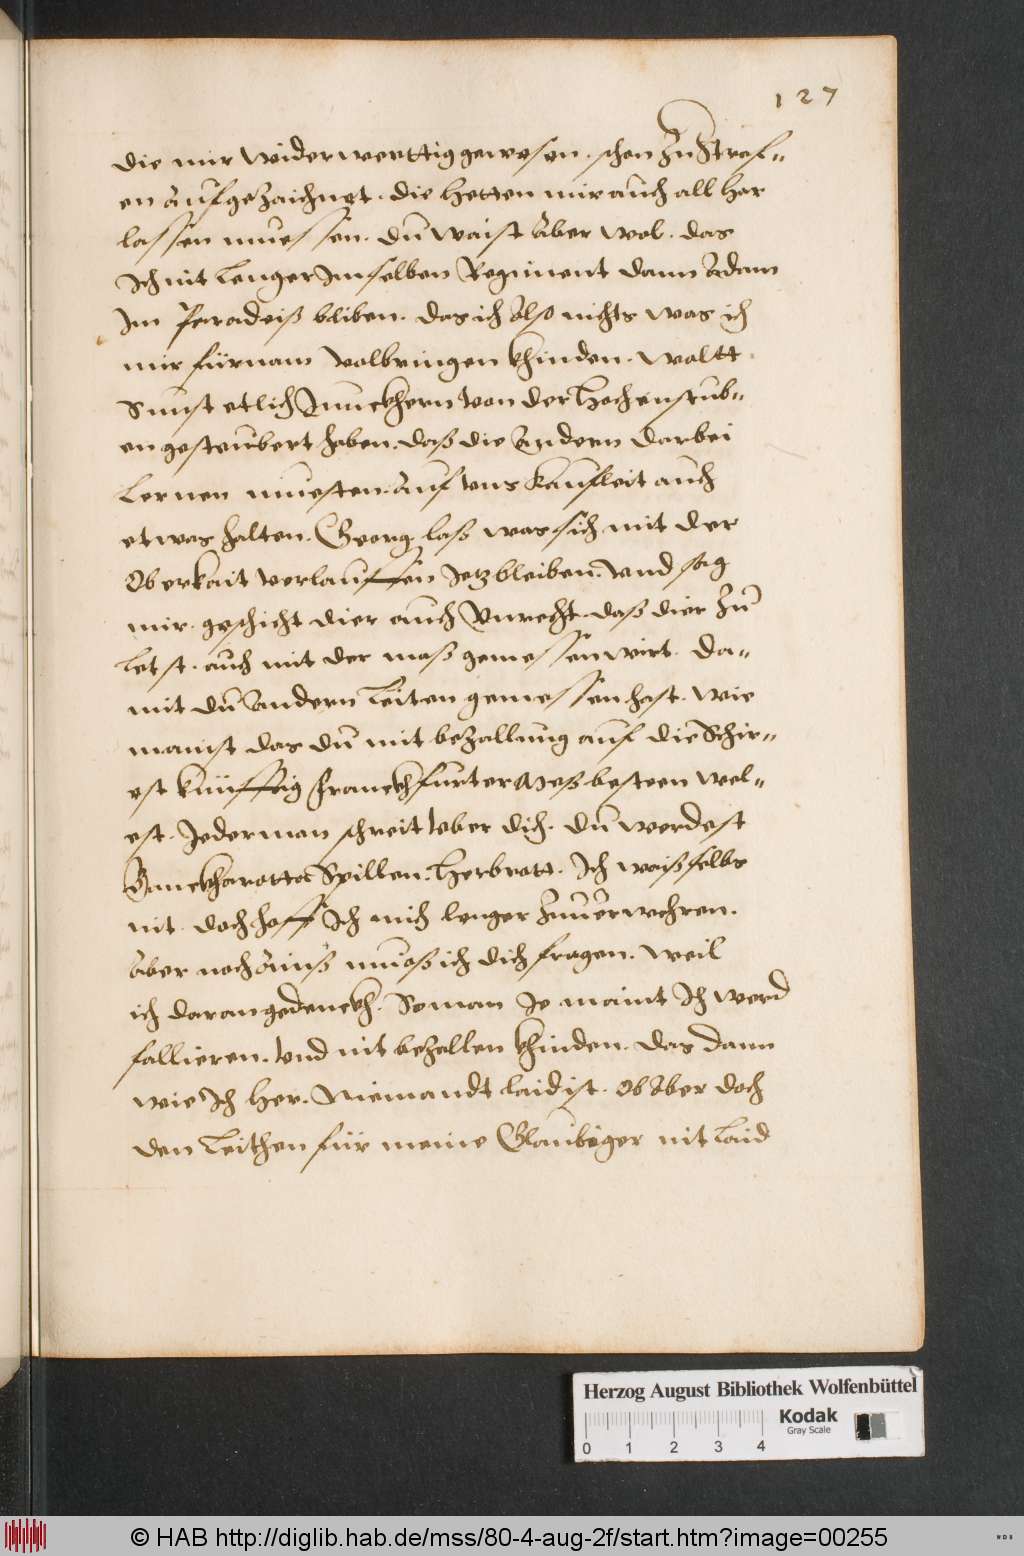 127
die mir widerwerttig gewesen. schon zu Straf-
en aufgezaichnet. die hetten mir auch all har
lassen muessen. du waist aber wol. das
Ich nit lenger Im selben Regiment dann Adam
Im Paradeiß bliben. das ich also nichts was ich
mir fürnam volbringen khinden. wollt
Sunst etlich Junckhern von der Hochenstub-
en gesteubert haben. daß die Andern darbei
lernen muesten. auf uns Kaufleit auch
etwas halten. Georg. laß was sich mit der
Oberkait verlauffen Jetz bleiben. Und sag
mir. geschicht dier auch Unrecht. daß dier zu
letst. auch mit der maß gemessen wirt. da-
mit du andern leiten gemessen hast. wie
mainst das du mit bezallung auf die Schir-
est künfftig Franckhfurter Meß besteen wel-
est. Jederman schreit uber dich. du werdest
Banckharotta Spillen. Herbrott. Ich waiß selbs
nit. doch hoff Ich mich lenger zuuerwehren.
Aber noch ainß mueß ich dich fragen. weil
ich daran gedenckh. So man Je maint Ich werd
fallieren. Und nit bezallen khinden. das dann
wie Ich her. Niemandt laid ist. Ob aber doch
den leithen für meine Glaubiger nit laid
Herzog August Bibliothek Wolfenbüttel
Kodak
Gray Scale
0 1 2 3 4
© HAB http://diglib.hab.de/mss/80-4-aug-2f/start.htm?image=00255